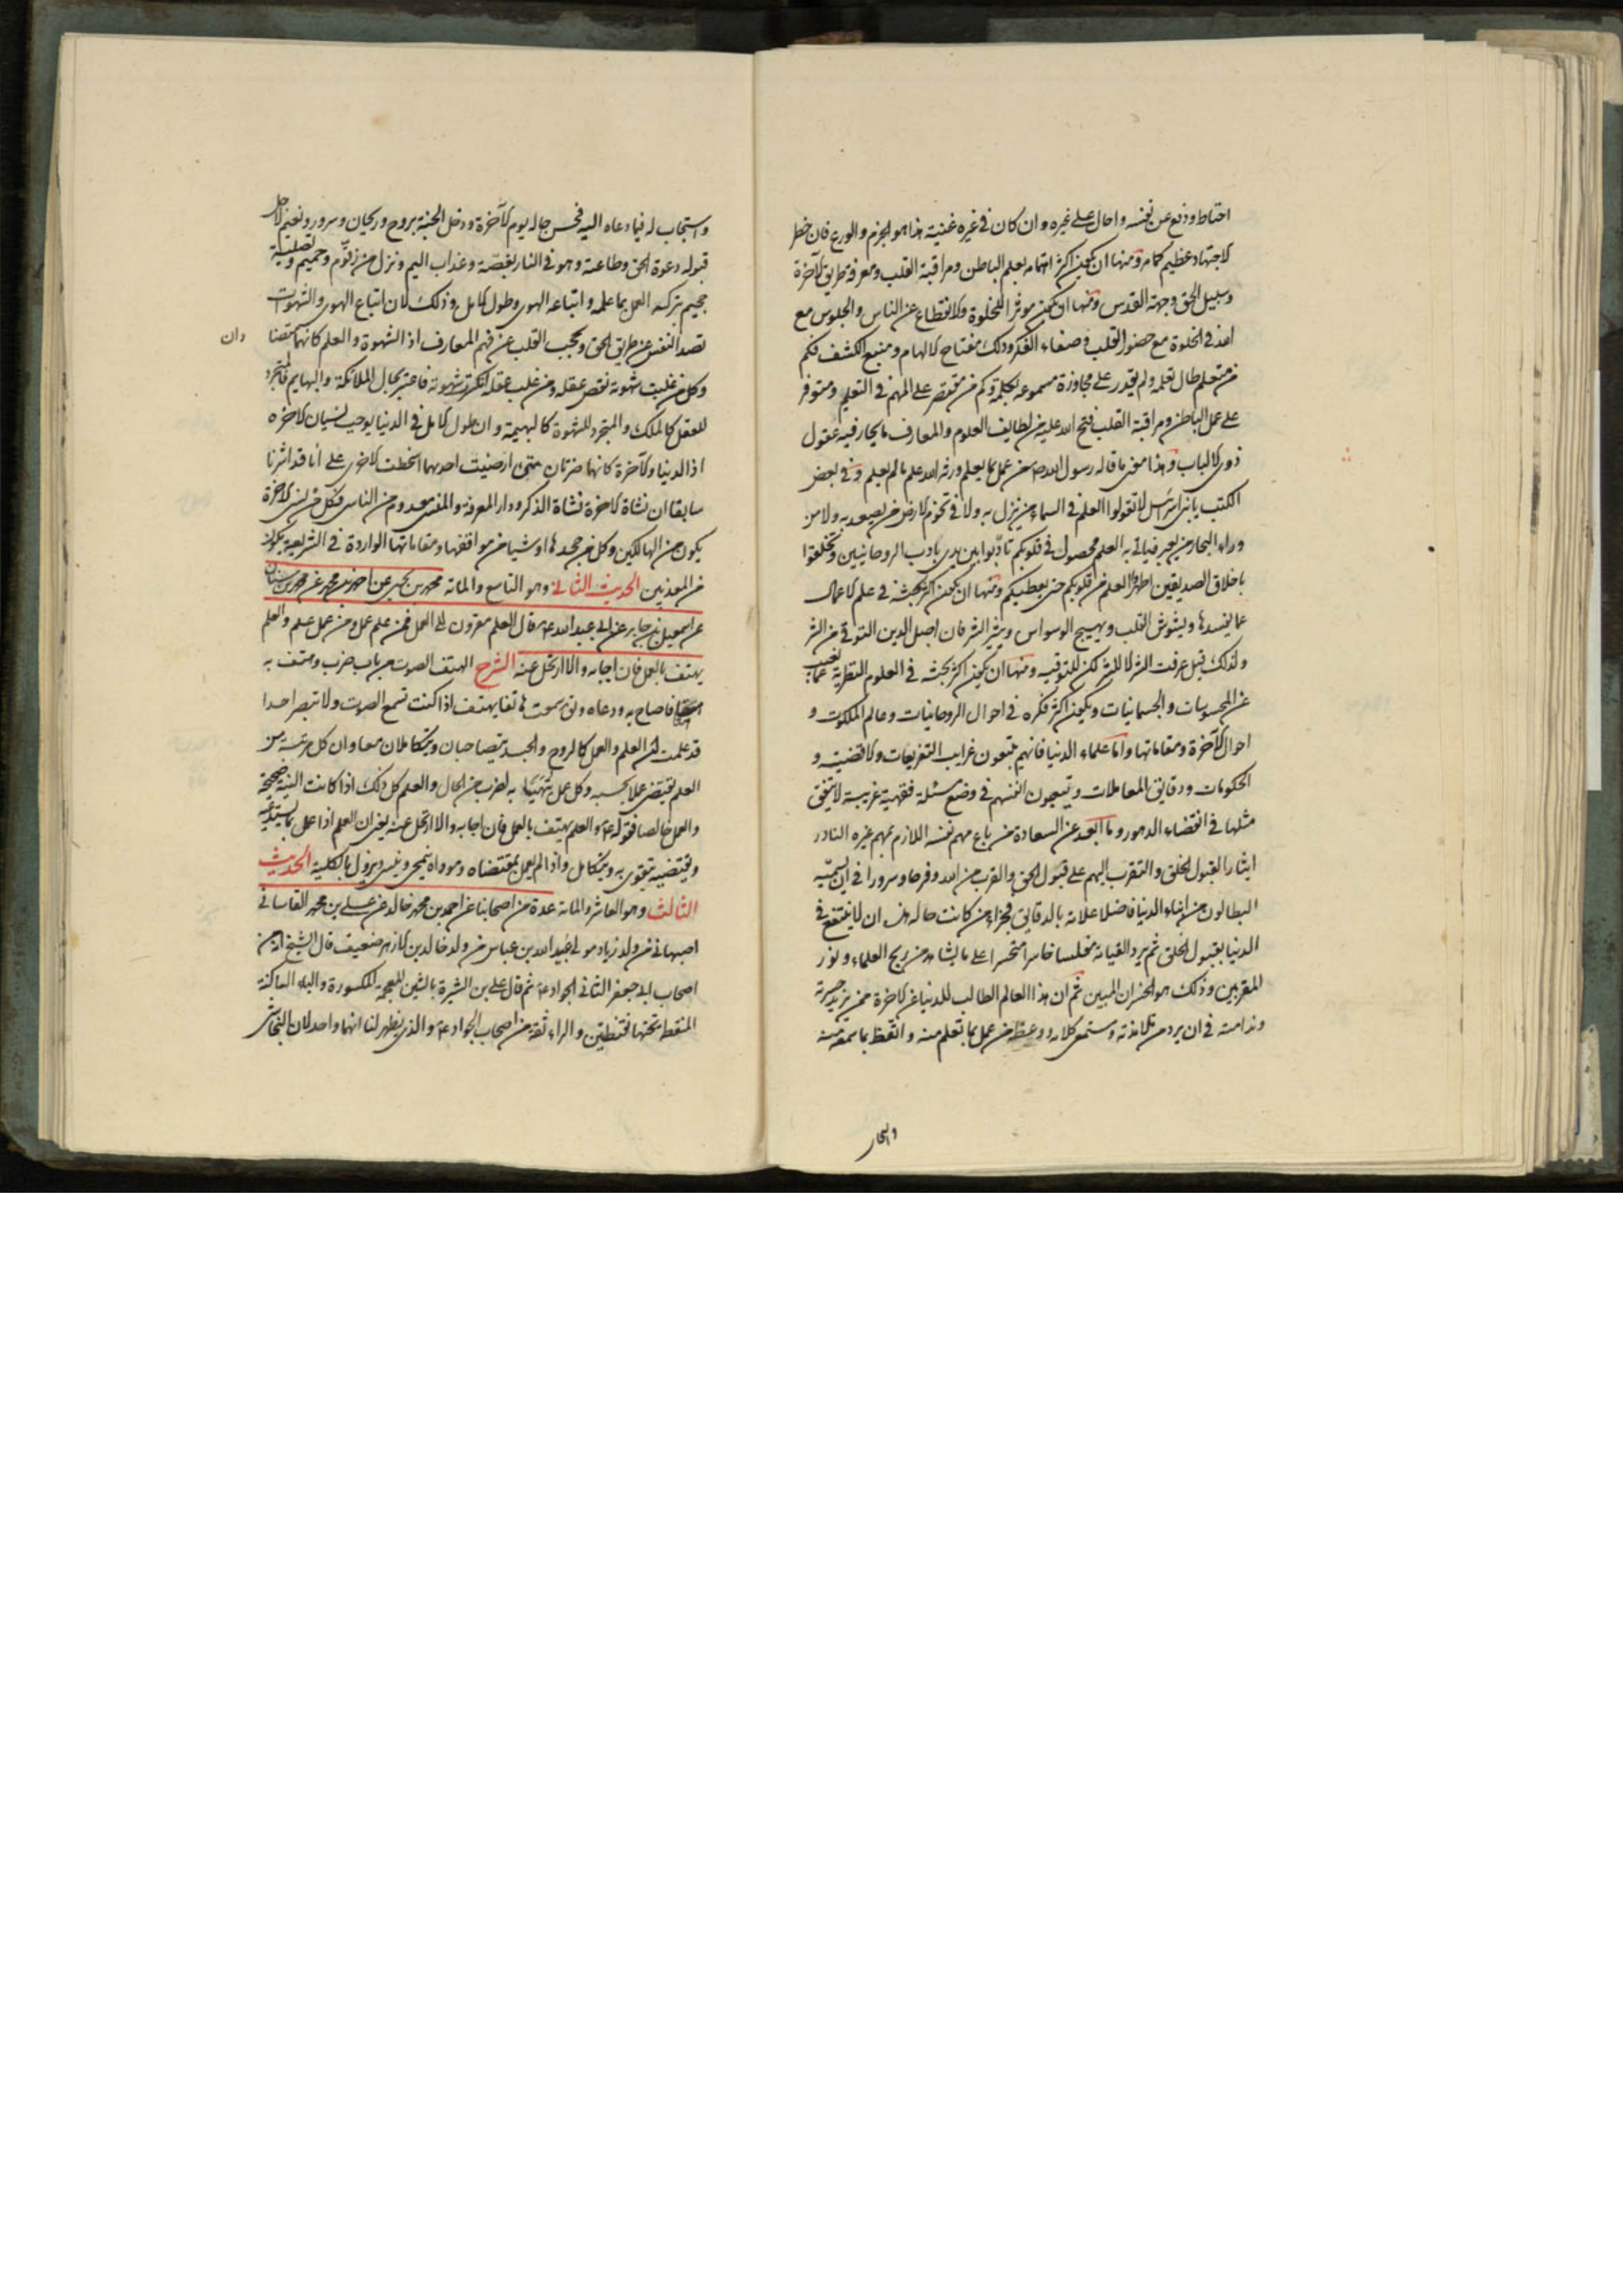 احتاط ودفع عن نفسه واحال على غيره وان كان في غيره غنية هذا هو الحزم والورع فان خطر
الاجتهاد عظيم كما مر ومنها ان يكون اكثر اهتمامه بعلم الباطن ومراقبة القلب ومعرفة طريق الآخرة
وسبيل الحق وجهة القدس ومنها ان يكون موثرا للخلوة والانقطاع عن الناس والجلوس مع
الله في الخلوة مع حضور القلب وصفاء الفكر وذلك مفتاح الالهام ومنبع الكشف فكم
من متعلم طال تعلمه ولم يقدر على مجاوزة مسموعه بكلمة وكم من مقتصر على المهم في التعليم ومتوفر
على عمل الباطن ومراقبة القلب فتح الله عليه من لطايف العلوم والمعارف ما يحار فيه عقول
ذوى الالباب وهذا معنى ما قاله رسول الله ص من عمل بما يعلم ورثه الله علم ما لم يعلم وفي بعض
الكتب يا بنى اسرائيل لا تقولوا العلم في السماء من ينزل به ولا في تخوم الارض من يصعد به ولا من
وراء البحار من يعبر فياتي به العلم محصول في قلوبكم تادبوا بين يدى باداب الروحانيين وتخلقوا
باخلاق الصديقين اظهر العلم من قلوبكم حتى يعطيكم ومنها ان يكون اكثر بحثه في علم الاعمال
عما يفسدها ويشوش القلب ويهيج الوسواس ويثير الشر فان اصل الدين التوقي من الشر
ولذلك قيل عرفت الشر لا للشر لكن لتوقيه ومنها ان يكون اكثر بحثه في العلوم النظرية عما يغيب
عن المحسوسات والجسمانيات ويكون اكثر فكره في احوال الروحانيات وعالم الملكوت و
احوال الآخرة ومقاماتها واما علماء الدنيا فانهم يتبعون غرايب التفريعات والاقضية و
الحكومات ودقايق المعاملات ويتعبون انفسهم في وضع مسئلة فقهية غريبة لا يتفق
مثلها في انقضاء الدهور وما ابعد عن السعادة من باع مهم نفسه اللازم بمهم غيره النادر
ايثارا لقبول الخلق والتقرب اليهم على قبول الحق والقرب من الله وفرحا وسرورا في ان يسميه
البطالون من ابناء الدنيا فاضلا علامة بالدقايق فجزاء من كانت حاله هذه ان لا ينتفع في
الدنيا بقبول الخلق ثم يرد القيامة مفلسا خاسرا متحسرا على ما يشاهد من ربح العلماء وفوز
المقربين وذلك هو الخسران المبين ثم ان هذا العالم الطالب للدنيا عن الآخرة ممن يزيد حسرته
وندامته في ان يرد من تلامذته ومستمعي كلامه ووعظه من عمل بما تعلم منه واتعظ بما سمعه منه
واستجاب
واستجاب له فيما دعاه اليه فحسن حاله يوم الآخرة ودخل الجنة بروح وريحان وسرور ونعيم لاجل
قبوله دعوة الحق وطاعته وهو في النار بغصة وعذاب اليم ونزل من زقوم وحميم وتصلية
جحيم بتركه العمل بما علمه واتباعه الهوى وطول الامل وذلك لان اتباع الهوى والشهوات
تصد النفس عن طريق الحق وتحجب القلب عن فهم المعارف اذ الشهوة والعلم كانهما متضادان
وكل من غلبت شهوته نقص عقله ومن غلب عقله انكسرت شهوته فاعتبر بحال الملائكة والبهايم فالمتجرد
للعقل كالملك والمتجرد للشهوة كالبهيمة وان طول الامل في الدنيا يوجب نسيان الآخرة
اذ الدنيا والآخرة كانهما ضرتان متى ارضيت احديهما اسخطت الاخرى على أنا قد اشرنا
سابقا ان نشاة الآخرة نشاة الذكر ودار المعرفة والمنسى معدوم من الناس فكل من نسى الآخرة
يكون من الهالكين وكل من جحدها او شيا من مواقفها ومقاماتها الواردة في الشريعة يكون
من المعذبين الحديث الثاني وهو التاسع والمائة محمد بن يحيى عن احمد بن محمد عن محمد بن سنان
عن اسمعيل بن جابر عن ابي عبد الله ع قال العلم مقرون الى العمل فمن علم عمل ومن عمل علم والعلم
يهتف بالعمل فان اجابه والا ارتحل عنه الشرح الهتف الصوت من باب ضرب وهتف به
هتافا صاح به ودعاه وتق سمعت هاتفا يهتف اذا كنت تسمع الصوت ولا تبصر احدا
قد علمت ان العلم والعمل كالروح والجسد يتصاحبان ويتكاملان معا وان كل مرتبة من
العلم يقتضى عملا بحسبه وكل عمل يتهيأ به لضرب من الحال والعلم كل ذلك اذا كانت النية صحيحة
والعمل خالصا فقوله ع والعلم يهتف بالعمل فان اجابه والا ارتحل عنه يعنى ان العلم اذا عمل بما يستدعيه
ويقتضيه يتقوى به ويتكامل واذا لم يعمل بمقتضاه ومؤداه ينمحى وينسى ويزول بالكلية الحديث
الثالث وهو العاشر والمائة عدة من اصحابنا عن احمد بن محمد خالد عن على بن محمد القاساني
اصبهاني من ولد زياد مولى عبيد الله بن عباس من ولد خالد بن الازهر ضعيف قال الشيخ انه من
اصحاب ابي جعفر الثاني الجواد ع ثم قال على بن الشيرة بالشين المعجمة المكسورة والياء الساكنة
المنقطة تحتها نقطتين والراء ثقة من اصحاب الجواد ع والذي يظهر لنا انهما واحد لان النجاشي